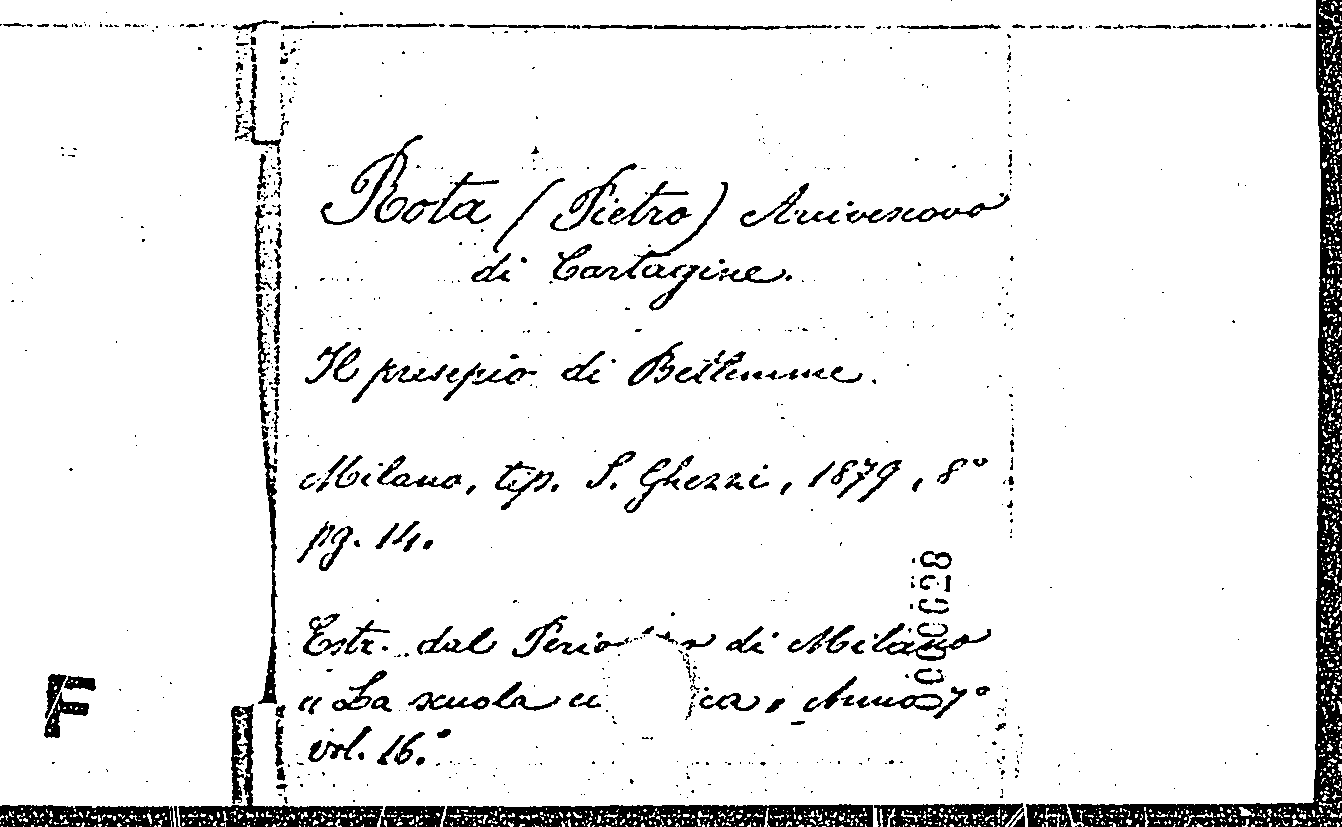 Rota (Pietro) Arcivescovo
di Cartagine.
Il presepio di Betlemme.
Milano, tip. S. Ghezzi, 1879, 8°
pg. 14.
Estr. dal di Milano
" La scuola Anno 7°
vol. 16.°
0000028
F